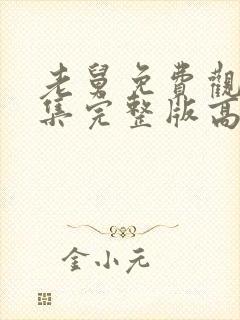 老舅免費觀
集完整版高
金小元